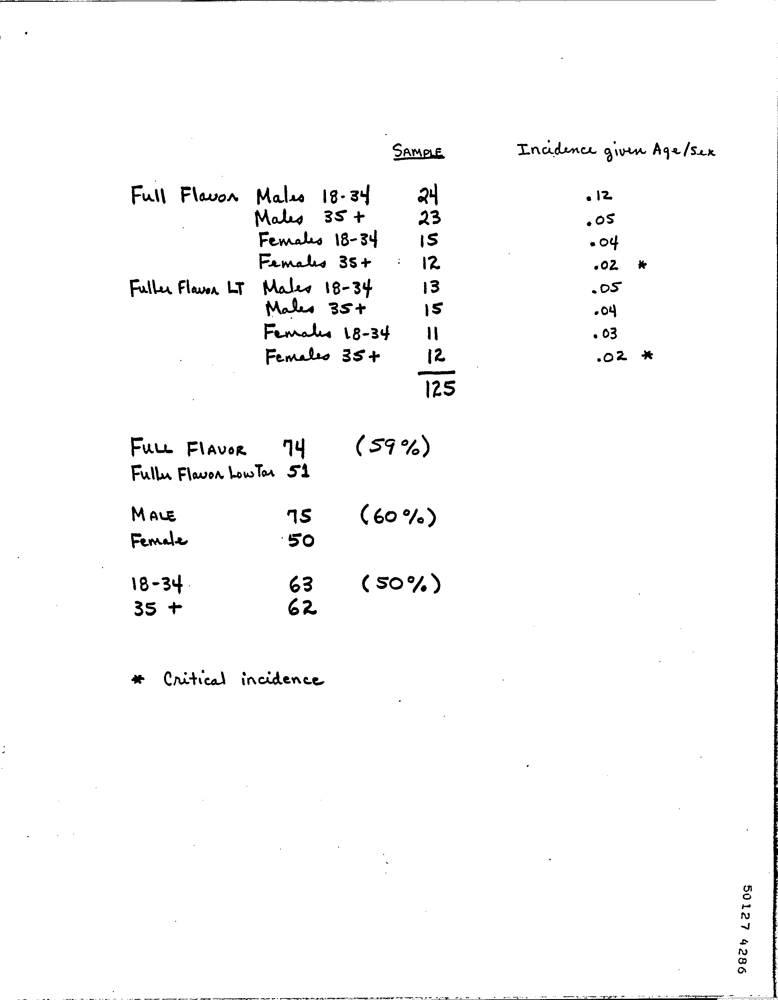 SAMPLE Incidence given Age/Sex
Full Flavor Males 18-34 24 .12
Males 35+ 23 .05
Females 18-34 15 .04
Females 35+ 12 .02 *
Fuller Flavor LT Males 18-34 13 .05
Males 35+ 15 .04
Females 18-34 11 .03
Females 35+ 12 .02 *
125
FULL FLAVOR 74 (59%)
Fuller Flavor Low Tar 51
MALE 75 (60%)
Female 50
18-34 63 (50%)
35 + 62
* Critical incidence
50127 4286